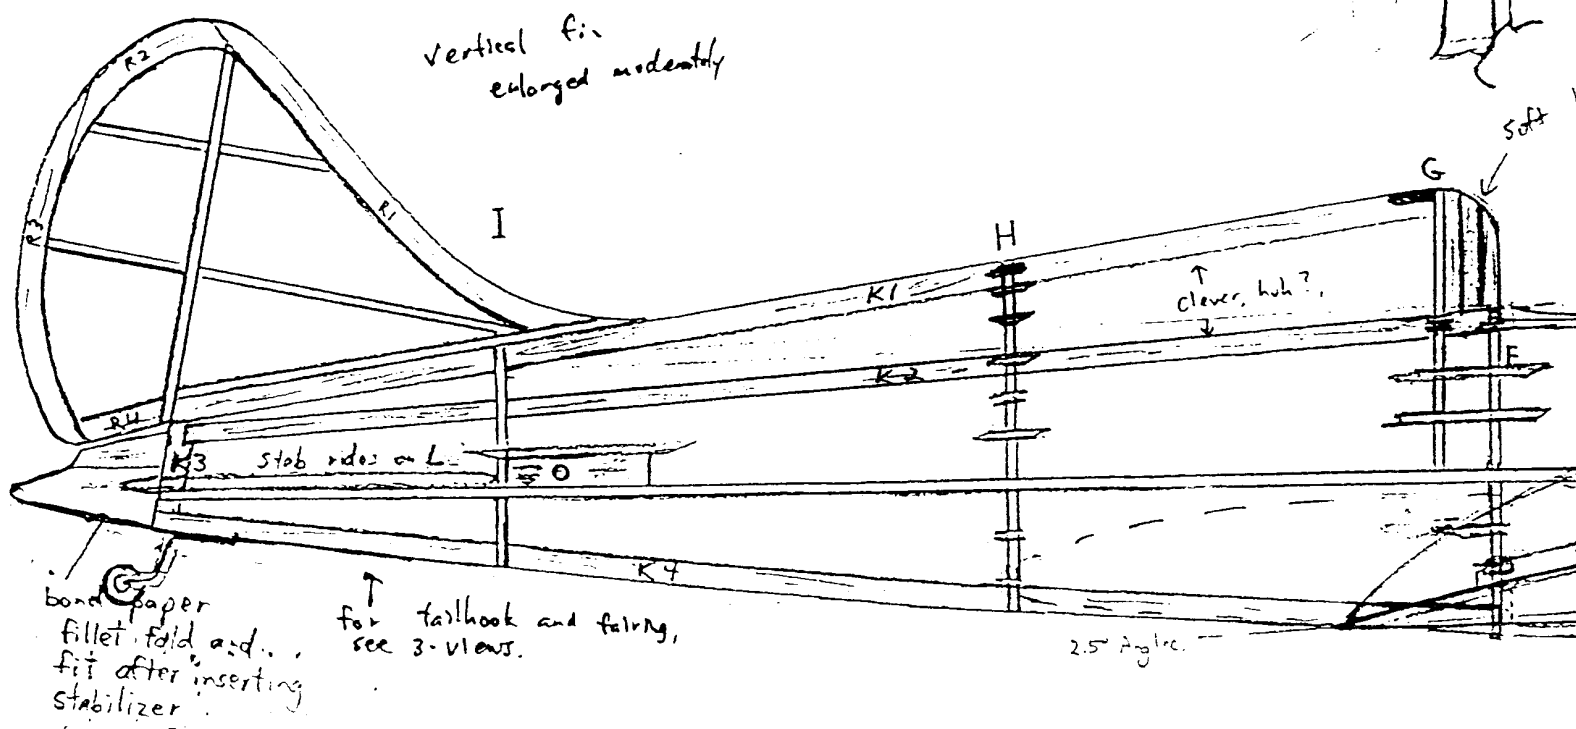 vertical fin
enlarged moderately
R2
Soft
G
R3
R1
I
H
K1
clever, huh?
F
K2
R4
K3
stab rides on
K4
bond paper
fillet. fold and
fit after inserting
stabilizer
for tailhook and fairing,
see 3-views.
2.5° Angle.